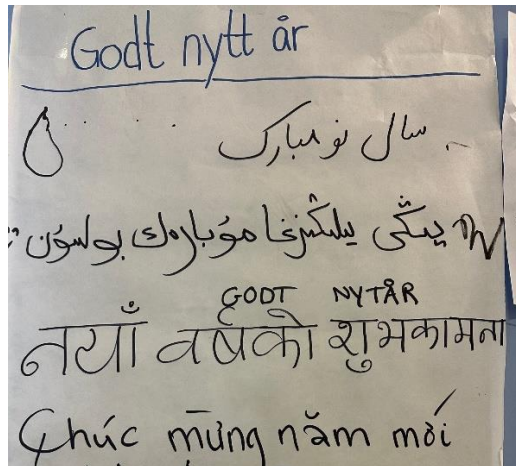 Godt nytt år
سال نو مبارک
يېڭى يىلىڭىزغا مۇبارەك بولسۇن
GODT NYTÅR
नयाँ वर्षको शुभकामना
Chúc mừng năm mới